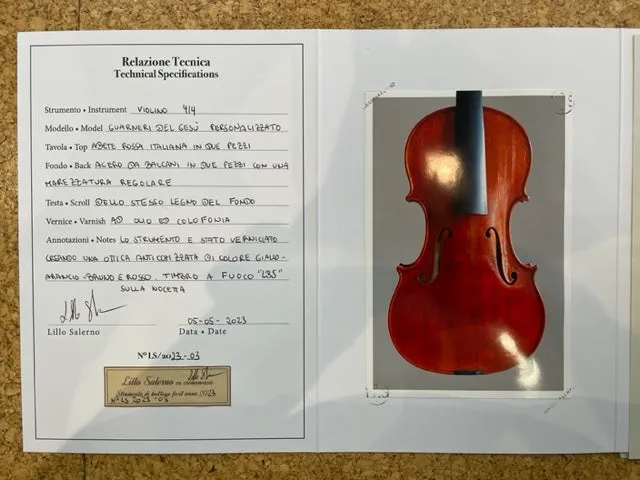 Relazione Tecnica
Technical Specifications
Strumento • Instrument VIOLINO 4/4
Modello • Model GUARNERI DEL GESÙ PERSONALIZZATO
Tavola • Top ABETE ROSSA ITALIANA IN DUE PEZZI
Fondo • Back ACERO DA BALCANI IN DUE PEZZI CON UNA
MAREZZATURA REGOLARE
Testa • Scroll DELLO STESSO LEGNO DEL FONDO
Vernice • Varnish AD OLIO ED COLOFONIA
Annotazioni • Notes LO STRUMENTO E STATO VERNICIATO
CREANDO UNA OTTICA ANTICCHIZZATA DI COLORE GIALLO-
ARANCIO-BRUNO E ROSSO. TIMBRO A FUOCO "L8S"
SULLA NOCETTA
Lillo Salerno
05-05-2023
Data • Date
N° LS/2023-03
Lillo Salerno
Strumento di bottega 2023
N° LS 2023-03